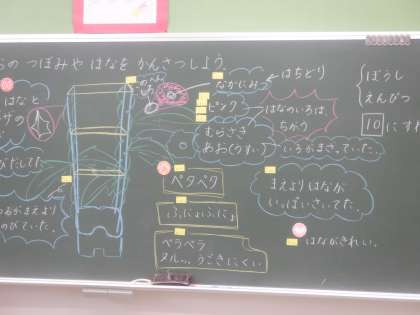 らの つぼみや はなを かんさつしよう。
はなと
びだしてた
まえより
のびていた。
なかにみつ
はちどり
ピンク
はなのいろは、
ちがう
むらさき
あお(うすい)
いろがまざっていた。
ペタペタ
ふにょふにょ
ペラペラ
ヌルッ、うごきにくい
まえよりはなが
いっぱいさいてた。
はながきれい。
ぼうし
えんぴつ
10 にすわ